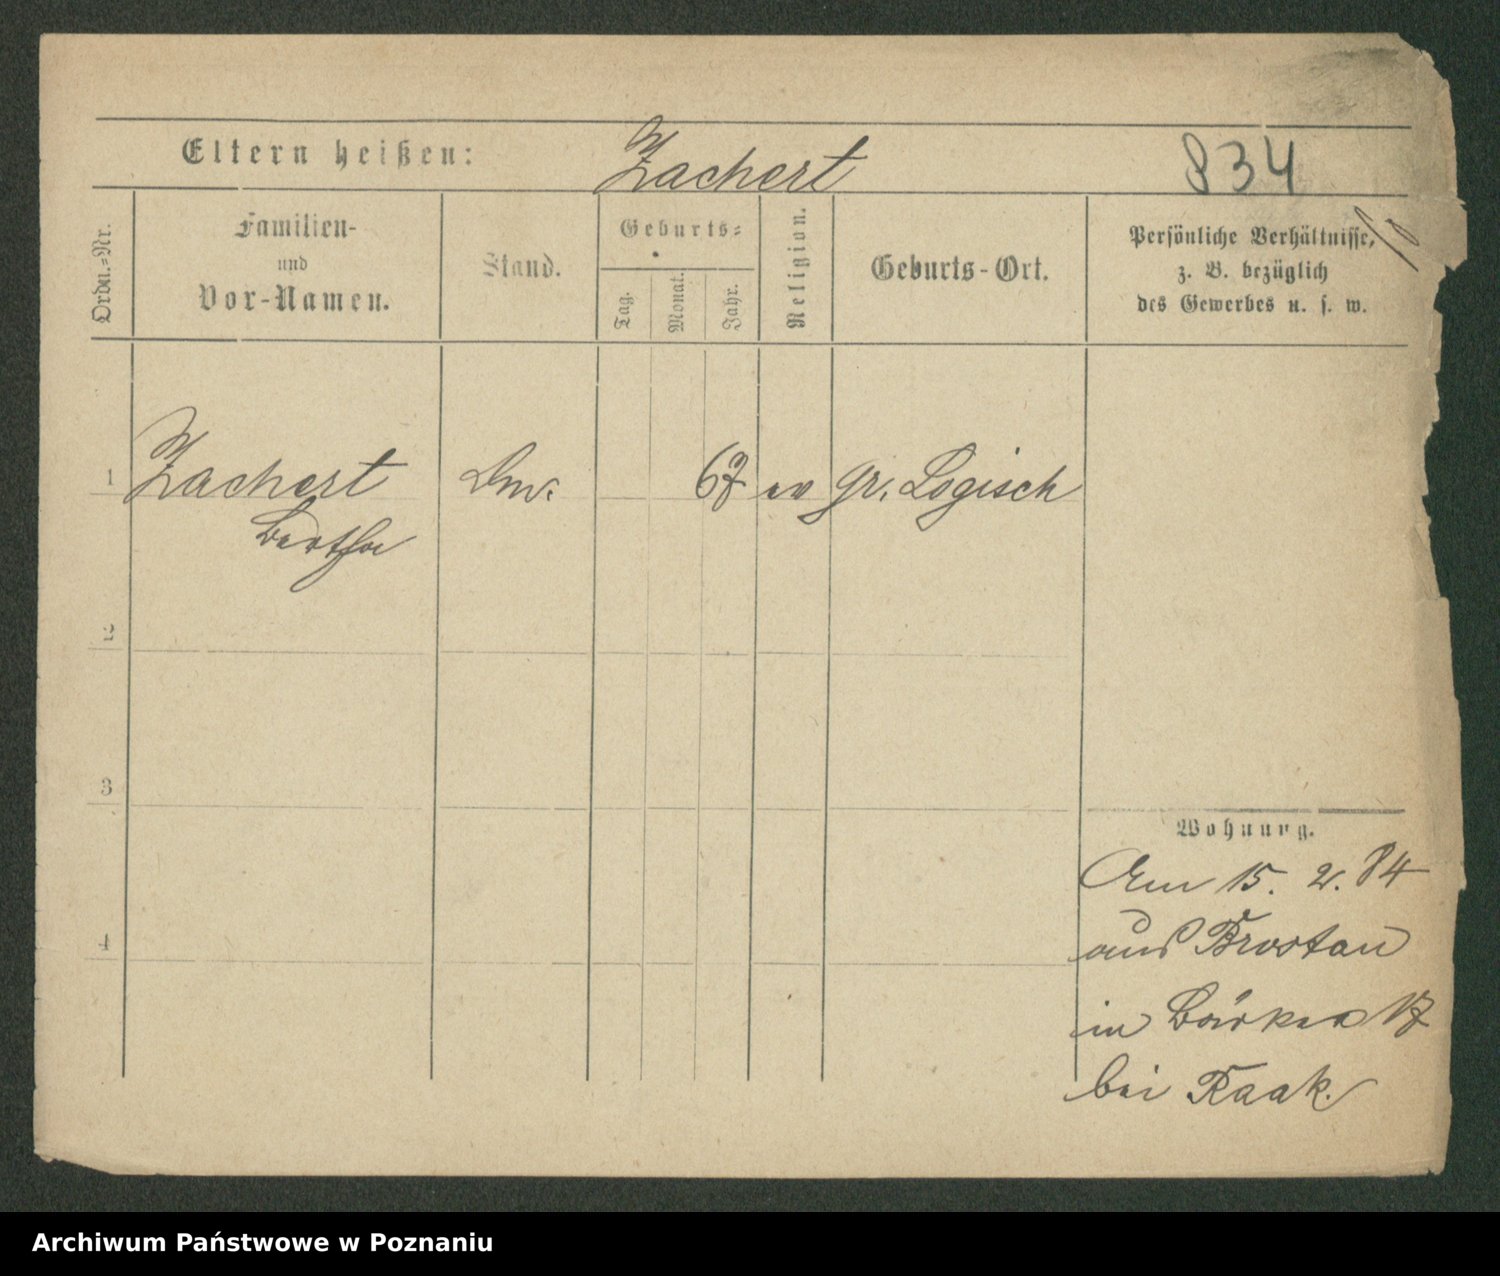 Eltern heißen: Zachert 834
Ordn.=Nr.
Familien-
und
Vor-Namen.
Stand.
Geburts=
Tag.
Monat.
Jahr.
Religion.
Geburts-Ort.
Persönliche Verhältnisse,
z. B. bezüglich
des Gewerbes u. s. w.
1 Zachert 67 ev gr. Logisch
Bertha
2
3
Wohnung.
Am 15. 2. 84
4
aus Brostau
in
bei Raak.